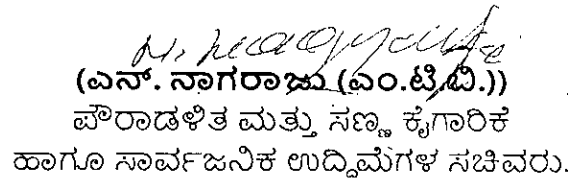 (ಎನ್. ನಾಗರಾಜು (ಎಂ.ಟಿ.ಬಿ.))
ಪೌರಾಡಳಿತ ಮತ್ತು ಸಣ್ಣ ಕೈಗಾರಿಕೆ
ಹಾಗೂ ಸಾರ್ವಜನಿಕ ಉದ್ದಿಮೆಗಳ ಸಚಿವರು.